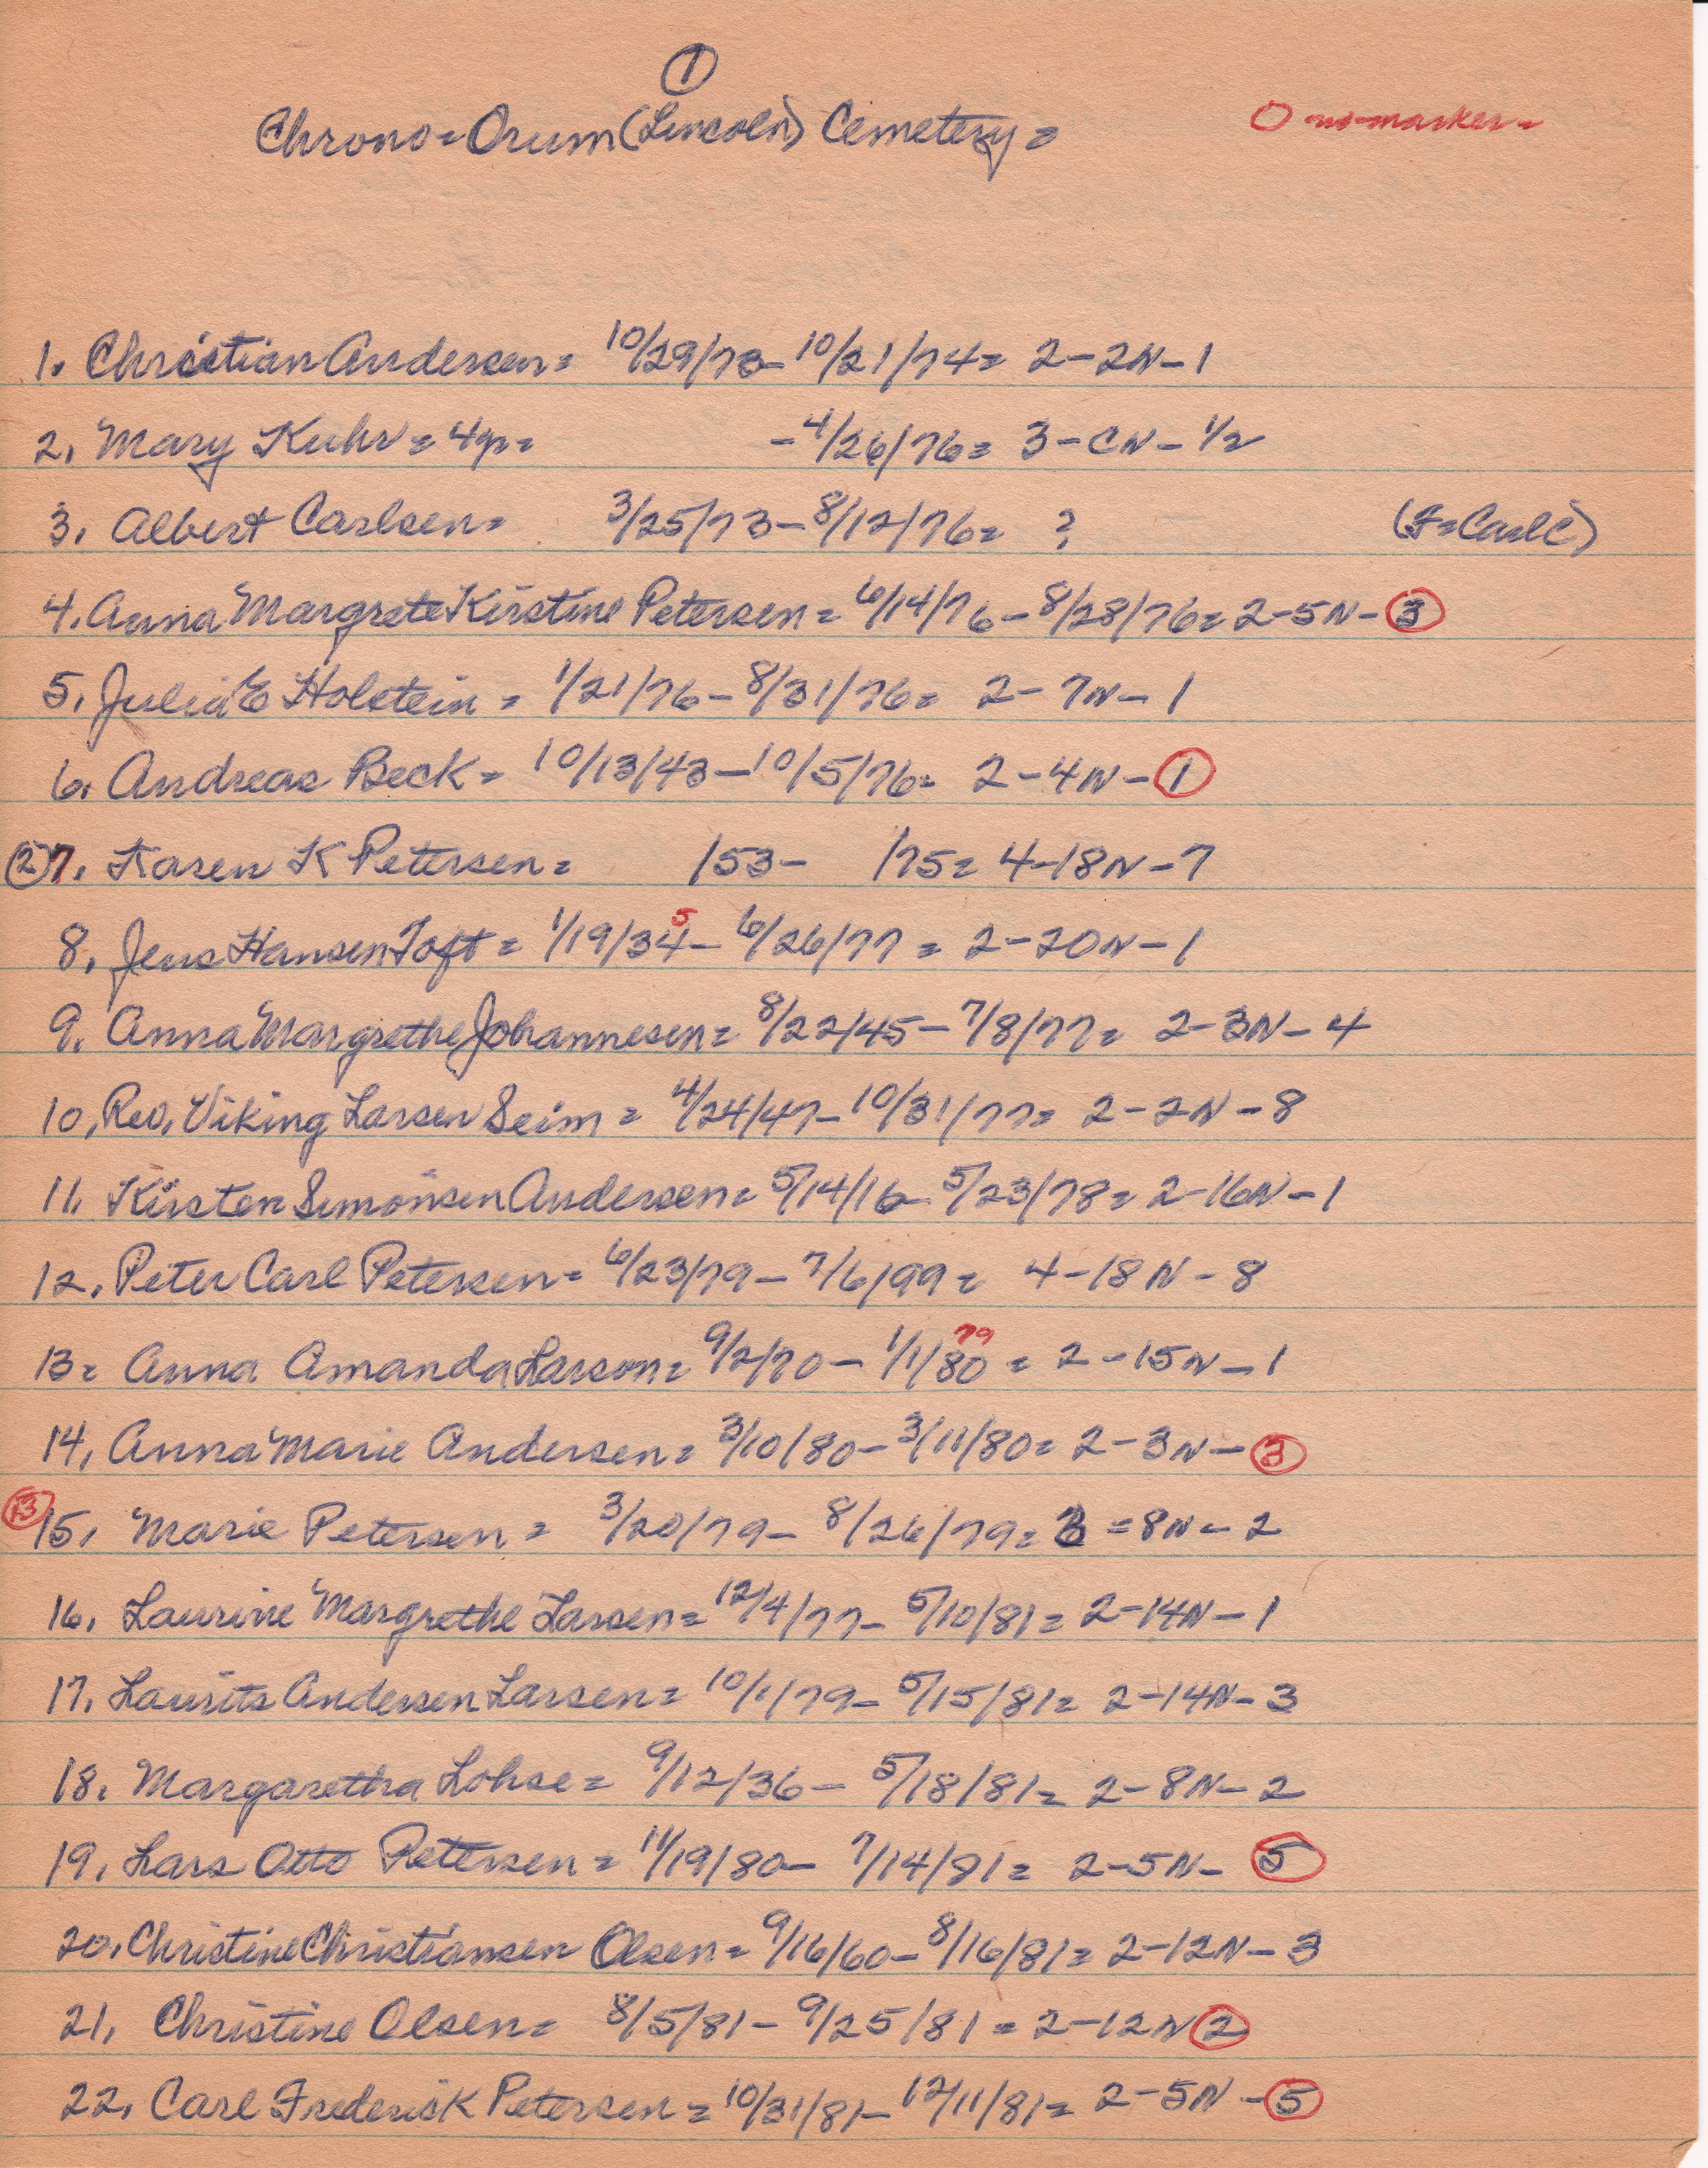 1
Chrono=Orum (Lincoln) Cemetery=
O no-marker=
1. Christian Andersen= 10/29/73-10/21/74= 2-2N-1
2. Mary Kuhr=4yr= -4/26/76= 3-CN-1/2
3. Albert Carlsen= 3/25/73-8/12/76= ? (F=Carl C)
4. Anna Margrete Kirstine Petersen= 6/14/76-8/28/76=2-5N-3
5. Julia E Holstein= 1/21/76-8/31/76= 2-7N-1
6. Andreas Beck= 10/13/43-10/5/76= 2-4N-1
(2) 7. Karen K Petersen= /53- /75= 4-18N-7
5
8. Jens Hansen Toft= 1/19/34- 6/26/77= 2-20N-1
9. Anna Margrethe Johannesen= 8/22/45-7/8/77= 2-3N-4
10. Rev. Viking Larsen Seim= 4/24/47-10/31/77= 2-2N-8
11. Kirsten Simonsen Andersen= 5/14/16-5/23/78=2-16N-1
12. Peter Carl Petersen= 6/23/79-7/6/99= 4-18N-8
79
13= Anna Amanda Larson= 9/2/70-1/1/80= 2-15N-1
14. Anna Marie Andersen= 3/10/80-3/11/80= 2-3N-3
13 15. Marie Petersen= 3/20/79- 8/26/79= 3=8N-2
16. Laurine Margrethe Larsen=12/4/77- 5/10/81=2-14N-1
17. Laurits Andersen Larsen= 10/1/79- 5/15/81= 2-14N-3
18. Margaretha Lohse= 9/12/36- 5/18/81= 2-8N-2
19. Lars Otto Petersen= 11/19/80- 7/14/81= 2-5N-5
20. Christine Christiansen Olsen= 9/16/60-8/16/81= 2-12N-3
21. Christine Olsen= 8/5/81-9/25/81=2-12N 2
22. Carl Frederick Petersen=10/31/81-12/11/81= 2-5N-5